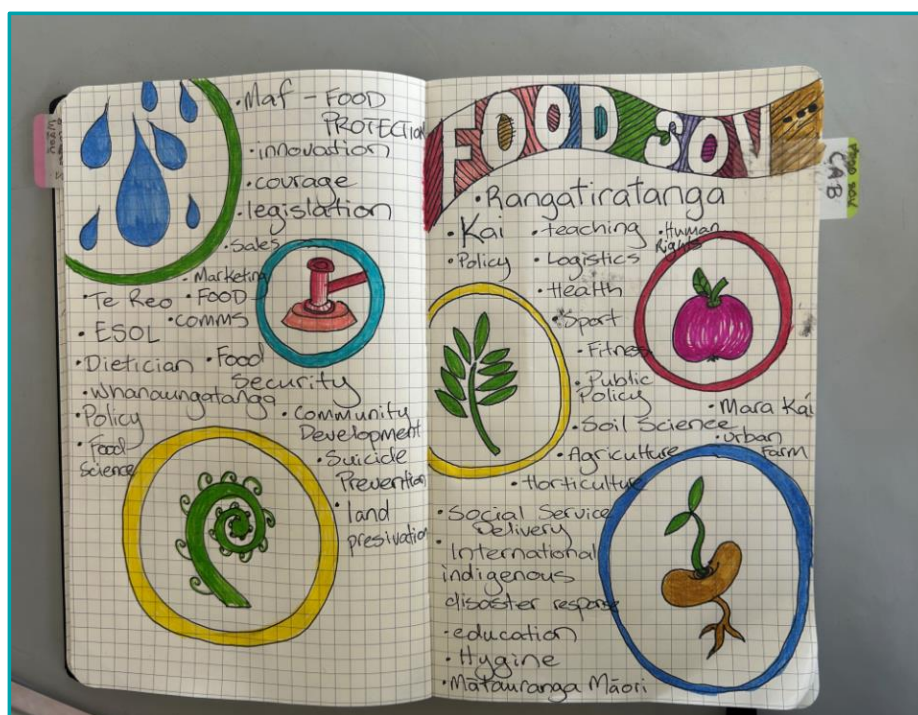 • Maf - FOOD
PROTECTION
• innovation
• courage
• legislation
• Sales
• Marketing
• Te Reo • FOOD
• comms
• ESOL
• Dietician • Food
Security
• Whanaungatanga
• Policy
• Community
Development
• Food
Science
• Suicide
Prevention
• land
presivation
FOOD SOV
CAB
• Rangatiratanga
• Kai • teaching • Human
Rights
• Policy • Logistics
• Health
• Sport
• Fitness
• Public
Policy
• Mara Kai
• Soil Science
• Urban
Farm
• Agriculture
• Horticulture
• Social Service
Delivery
• International
indigenous
disaster response
• education
• Hygine
• Mātauranga Māori